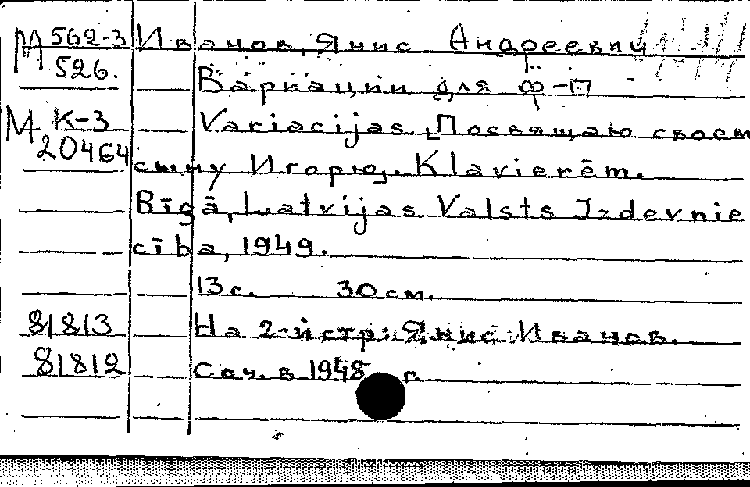 М 562-3 Иванов, Янис Андреевич
526.
Вариации для ф-п
М К-3 Variacijas [Посвящаю своем
20464 сыну Игорю]. Klavierēm.
Rīgā, Latvijas Valsts Izdevnie
cība, 1949.
13 с. 30 см.
81813 На 2-й стр: Янис Иванов.
81812 Соч. в 1948 г.